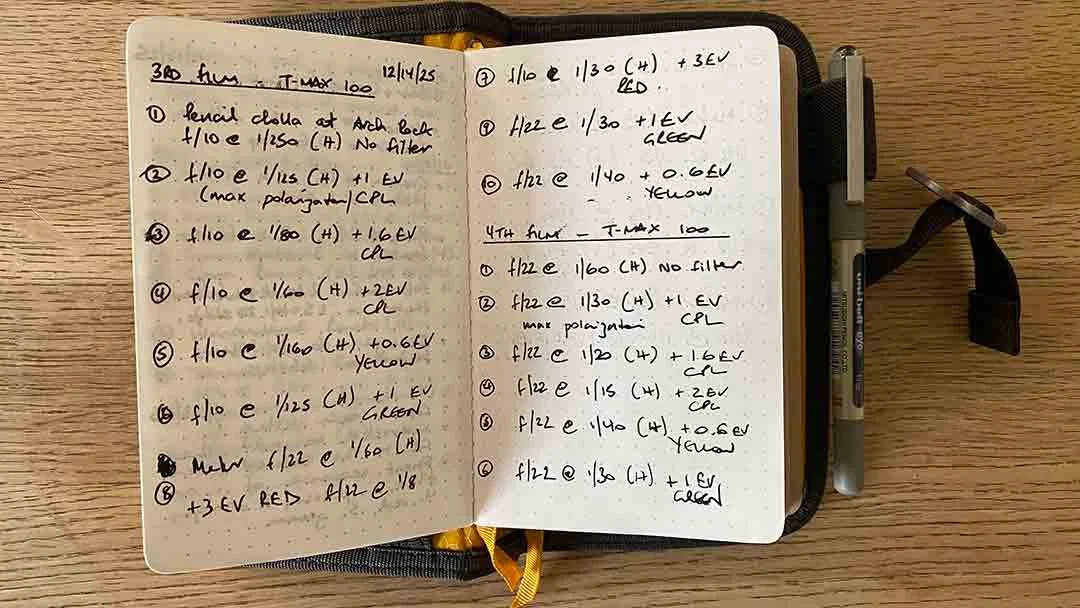 3RD FILM - T-MAX 100
12/14/25
① Pencil cholla at Arch Rock
f/10 @ 1/250 (H) No filter
② f/10 @ 1/125 (H) +1 EV
(max polarization) CPL
③ f/10 @ 1/80 (H) +1.6 EV
CPL
④ f/10 @ 1/60 (H) +2EV
CPL
⑤ f/10 @ 1/160 (H) +0.6EV
YELLOW
⑥ f/10 @ 1/125 (H) +1 EV
GREEN
Meter f/22 @ 1/60 (H)
⑧ +3 EV RED f/22 @ 1/8
⑦ f/10 @ 1/30 (H) +3EV
RED.
⑨ f/22 @ 1/30 +1EV
GREEN
⑩ f/22 @ 1/40 + 0.6EV
YELLOW
4TH FILM - T-MAX 100
① f/22 @ 1/60 (H) No filter
② f/22 @ 1/30 (H) +1 EV
max polarization CPL
③ f/22 @ 1/20 (H) + 1.6 EV
CPL
④ f/22 @ 1/15 (H) + 2EV
CPL
⑤ f/22 @ 1/40 (H) +0.6 EV
YELLOW
⑥ f/22 @ 1/30 (H) +1 EV
GREEN
uni-ball eye